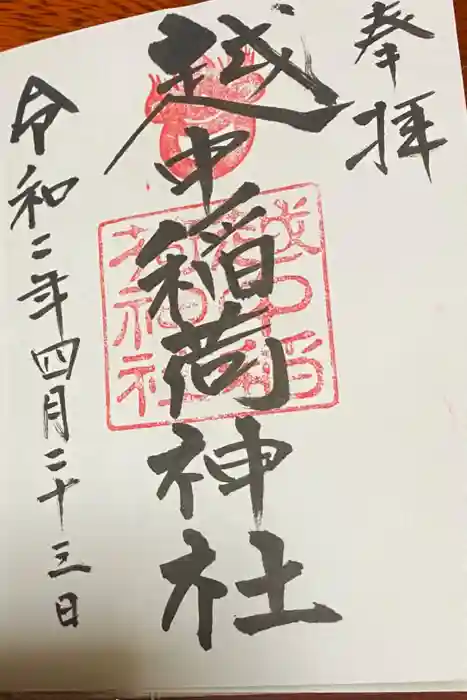 奉拝
越中稲荷神社
越中稲荷神社
令和二年四月二十三日